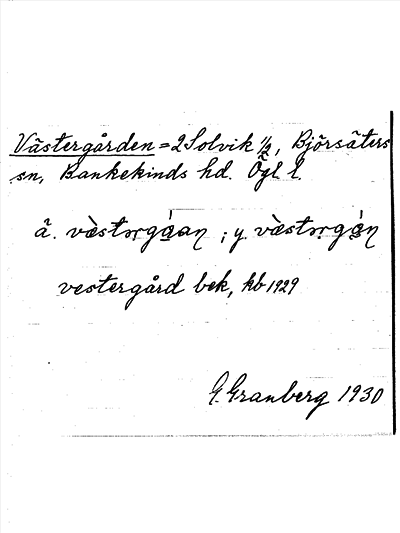 Västergården = 2 Solvik 1/2, Björsäters
sn, Bankekinds hd. Ögl. l.
ä. vὲstərgáan ; y. vὲstərgán
vestergård bek, kb 1929
G. Granberg 1930